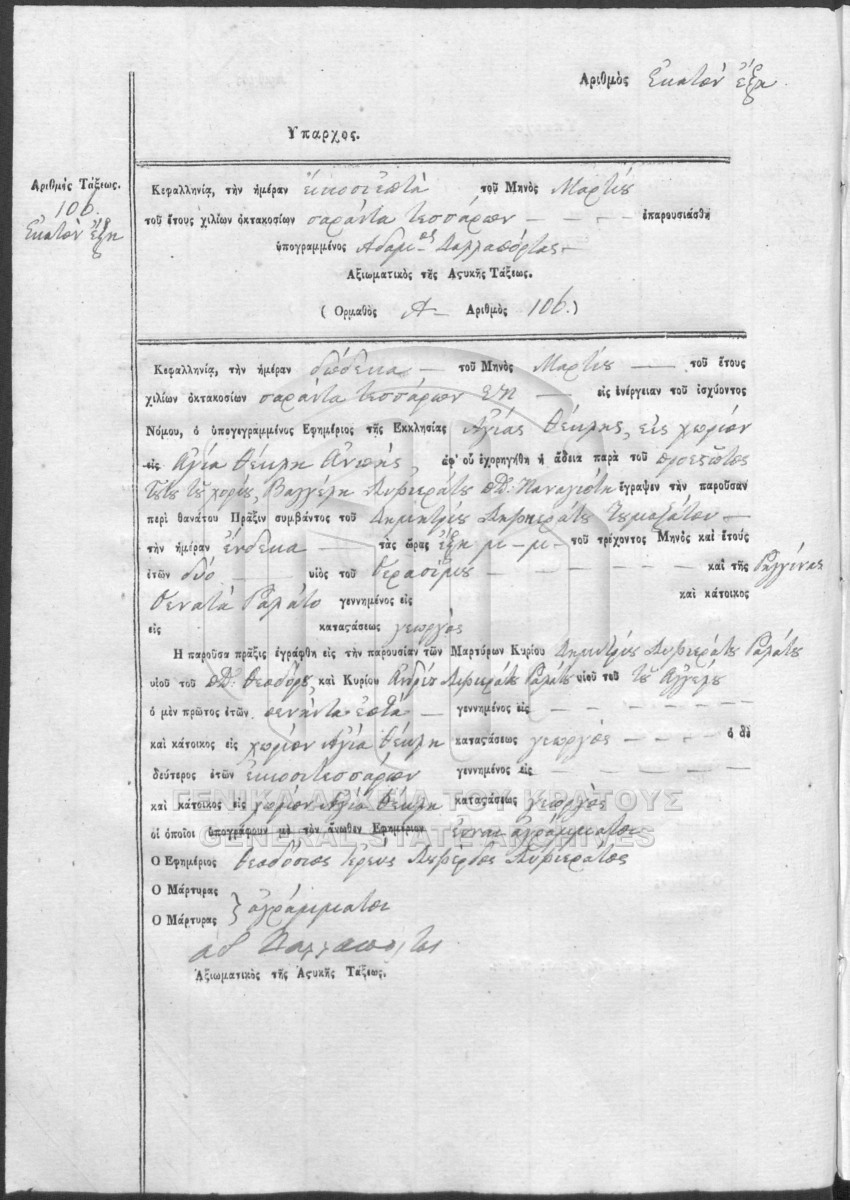 Αριθμὸς Ἑκατὸν ἕξη
Υπαρχος.
Αριθμὸς Τάξεως.
106.
Ἑκατὸν ἕξη
Κεφαλληνίᾳ, τὴν ἡμέραν εἰκοσιεπτὰ τοῦ Μηνὸς Μαρτίȣ
τοῦ ἔτους χιλίων ὀκτακοσίων σαράντα τεσσάρων — — — — ἐπαρουσιάσθη
ὑπογραμμένος Δαλλαπόρτας —
Αξιωματικὸς τῆς Αςυκῆς Τάξεως.
( Ορμαθὸς A — Αριθμὸς 106.)
Κεφαλληνίᾳ, τὴν ἡμέραν δώδεκα — τοῦ Μηνὸς Μαρτίȣ — τοῦ ἔτους
χιλίων ὀκτακοσίων σαράντα τεσσάρων — εἰς ἐνέργειαν τοῦ ἰσχύοντος
Νόμου, ὁ ὑπογεγραμμένος Εφημέριος τῆς Εκκλησίας Ἁγίας Θέκλης, εἰς χωρίον
εἰς Ἁγία Θέκλη Ἀνωγῆς, ἀφ' οὗ ἐχορηγήθη ἡ ἄδεια παρὰ τοῦ προεςῶτος
Βαγγέλη Παναγιότη ἔγραψεν τὴν παροῦσαν
περὶ θανάτου Πρᾶξιν συμβάντος τοῦ Δημητρίȣ —
τὴν ἡμέραν ἕνδεκα — τὰς ὥρας ἕξη μ—μ— τοῦ τρέχοντος Μηνὸς καὶ ἔτους
ἐτῶν δύο — υἱὸς τοῦ Γερασίμȣ — — — — — — καὶ τῆς
γεννημένος εἰς καὶ κάτοικος
εἰς καταςάσεως γεωργὸς
Η παροῦσα πρᾶξις ἐγράφθη εἰς τὴν παρουσίαν τῶν Μαρτύρων Κυρίου Δημητρίȣ
υἱοῦ τοῦ Θεοδόρȣ, καὶ Κυρίου Ἀνδρέα υἱοῦ τοῦ τȣ Ἀγγέλȣ
ὁ μὲν πρῶτος ἐτῶν πενήντα ἑπτὰ — γεννημένος εἰς — — — — —
καὶ κάτοικος εἰς χωρίον Ἁγία Θέκλη καταςάσεως γεωργὸς — — — — ὁ δὲ
δεύτερος ἐτῶν εἰκοσιτεσσάρων γεννημένος εἰς — — — — —
καὶ κάτοικος εἰς χωρίον Ἁγία Θέκλη καταςάσεως γεωργὸς
οἱ ὁποῖοι ὑπογράφουν μὲ τὸν ἄνωθεν Εφημέριον εἶναι ἀγράμματοι
Ο Εφημέριος Θεοδόσιος ἱερεὺς
Ο Μάρτυρας
Ο Μάρτυρας } ἀγράμματοι
Αξιωματικὸς τῆς Αςυκῆς Τάξεως.
ΓΕΝΙΚΑ ΑΡΧΕΙΑ ΤΟΥ ΚΡΑΤΟΥΣ
GENERAL STATE ARCHIVES